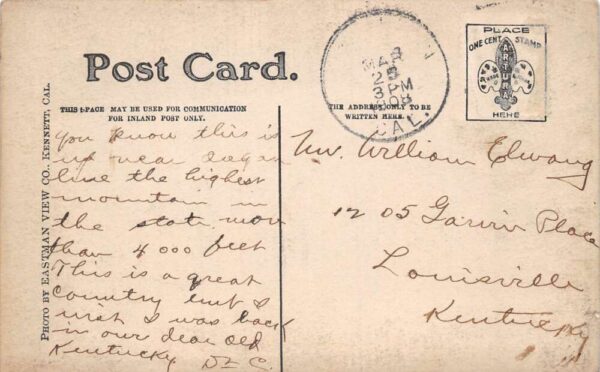 Post Card.
THIS SPACE MAY BE USED FOR COMMUNICATION
FOR INLAND POST ONLY.
THE ADDRESS ONLY TO BE
WRITTEN HERE.
PLACE
ONE CENT STAMP
ARTURA
HERE
MAR
25
3 PM
1908
CAL.
PHOTO BY EASTMAN VIEW CO., KENNETT, CAL.
You know this is
up near
line the highest
mountain in
the state more
than 4000 feet
This is a great
country but I
wish I was back
in our dear old
Kentucky
Mr. William Elwang
1205 Garvin Place
Louisville
Kentucky